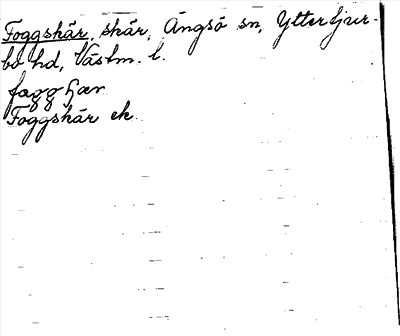 Foggskär, skär, Ängsö sn, Yttertjur-
bo hd, Västm. l.
fogg hær
Foggskär ek